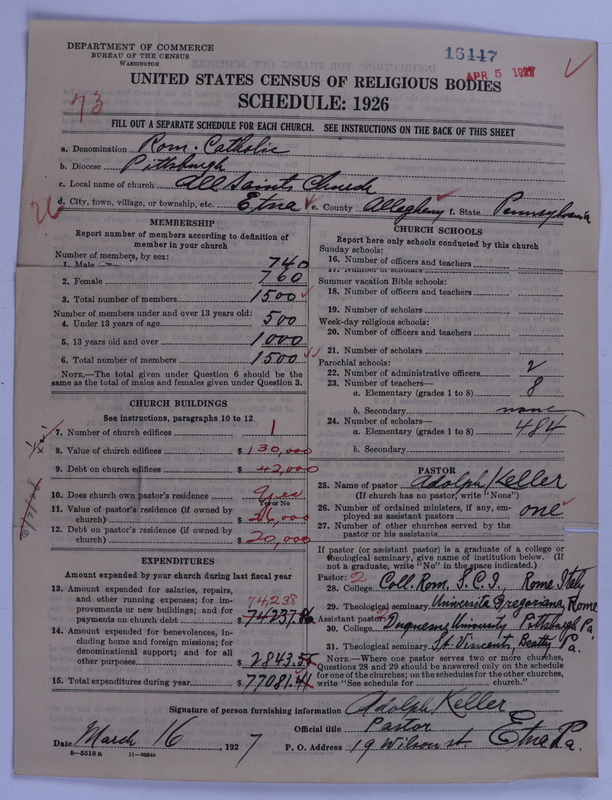 DEPARTMENT OF COMMERCE
BUREAU OF THE CENSUS
WASHINGTON
16447
APR 5 1927
UNITED STATES CENSUS OF RELIGIOUS BODIES
SCHEDULE: 1926
73
FILL OUT A SEPARATE SCHEDULE FOR EACH CHURCH. SEE INSTRUCTIONS ON THE BACK OF THIS SHEET
a. Denomination Rom. Catholic
b. Diocese Pittsburgh
c. Local name of church All Saints Church
d. City, town, village, or township, etc. Etna e. County Allegheny f. State Pennsylvania
MEMBERSHIP
Report number of members according to definition of
member in your church
Number of members, by sex:
1. Male 740
2. Female 760
3. Total number of members 1500
Number of members under and over 13 years old:
4. Under 13 years of age 500
5. 13 years old and over 1000
6. Total number of members 1500
NOTE.—The total given under Question 6 should be
same as the total of males and females given under Question 3.
CHURCH BUILDINGS
See instructions, paragraphs 10 to 12
7. Number of church edifices 1
8. Value of church edifices $130,000
9. Debt on church edifices $42,000
10. Does church own pastor's residence Yes
Yes or No
11. Value of pastor's residence (if owned by
church)
12. Debt on pastor's residence (if owned by
church) $20,000
EXPENDITURES
Amount expended by your church during last fiscal year
13. Amount expended for salaries, repairs,
and other running expenses; for im-
provements or new buildings; and for
payments on church debt 74,238
$74237.86
14. Amount expended for benevolences, in-
cluding home and foreign missions; for
denominational support; and for all
other purposes $2843.55
15. Total expenditures during year $77081.41
CHURCH SCHOOLS
Report here only schools conducted by this church
Sunday schools:
16. Number of officers and teachers
17. Number of scholars
Summer vacation Bible schools:
18. Number of officers and teachers
19. Number of scholars
Week-day religious schools:
20. Number of officers and teachers
21. Number of scholars
Parochial schools:
22. Number of administrative officers 2
23. Number of teachers—
a. Elementary (grades 1 to 8) 8
b. Secondary none
24. Number of scholars—
a. Elementary (grades 1 to 8) 484
b. Secondary
PASTOR
25. Name of pastor Adolph Keller
(If church has no pastor, write "None")
26. Number of ordained ministers, if any, em-
ployed as assistant pastors one
27. Number of other churches served by the
pastor or his assistants
If pastor (or assistant pastor) is a graduate of a college or
theological seminary, give name of institution below. (If
not a graduate, write "No" in the space indicated.)
Pastor: 2
28. College Coll. Rom. S.C.I., Rome Italy
29. Theological seminary Universita Gregoriana, Rome
Assistant pastor:
30. College Duquesne University Pittsburgh Pa.
31. Theological seminary St. Vincents, Beatty Pa.
NOTE.—Where one pastor serves two or more churches,
Questions 28 and 29 should be answered only on the schedule
for one of the churches; on the schedules for the other churches,
write "See schedule for church."
Signature of person furnishing information Adolph Keller
Official title Pastor
Date March 16, 1927 P. O. Address 19 Wilson st. Etna Pa.
8-5518a 11-9054a